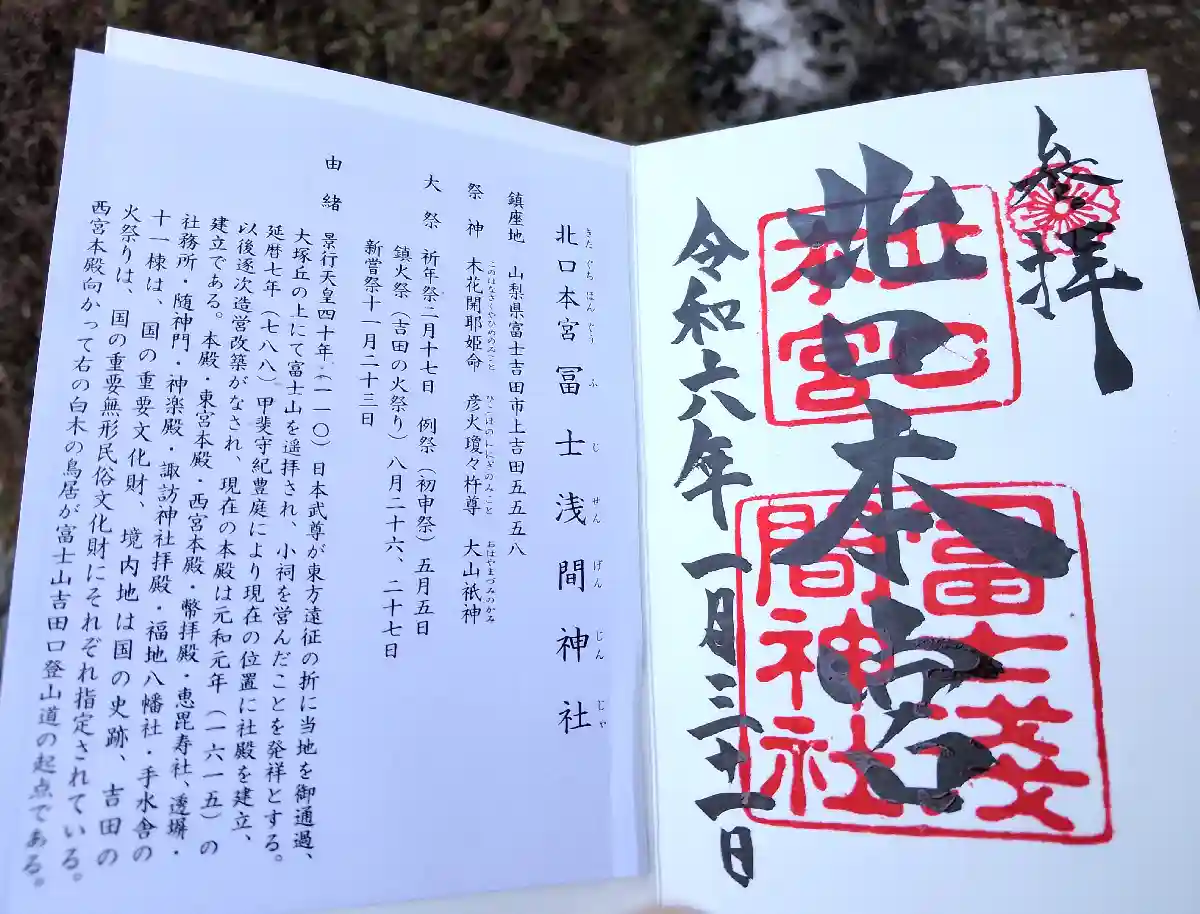 参拝
北口本宮
北口
本宮
冨士淺
間神社
令和六年 一月三十一日
北口本宮 冨士浅間神社
きたぐちほんぐう ふじせんげんじんじゃ
鎮座地 山梨県富士吉田市上吉田五五五八
祭神 木花開耶姫命 彦火瓊々杵尊 大山祇神
このはなさくやひめのみこと ひこほのににぎのみこと おほやまづみのかみ
大祭 祈年祭二月十七日 例祭(初申祭)五月五日
鎮火祭(吉田の火祭り)八月二十六、二十七日
新嘗祭十一月二十三日
由緒 景行天皇四十年(一一〇)日本武尊が東方遠征の折に当地を御通過、
大塚丘の上にて富士山を遥拝され、小祠を営んだことを発祥とする。
延暦七年(七八八)甲斐守紀豊庭により現在の位置に社殿を建立、
以後逐次造営改築がなされ、現在の本殿は元和元年(一六一五)の
建立である。本殿・東宮本殿・西宮本殿・幣拝殿・恵毘寿社、透塀・
社務所・随神門・神楽殿・諏訪神社拝殿・福地八幡社・手水舎の
十一棟は、国の重要文化財、境内地は国の史跡、吉田の
火祭りは、国の重要無形民俗文化財にそれぞれ指定されている。
西宮本殿向かって右の白木の鳥居が富士山吉田口登山道の起点である。